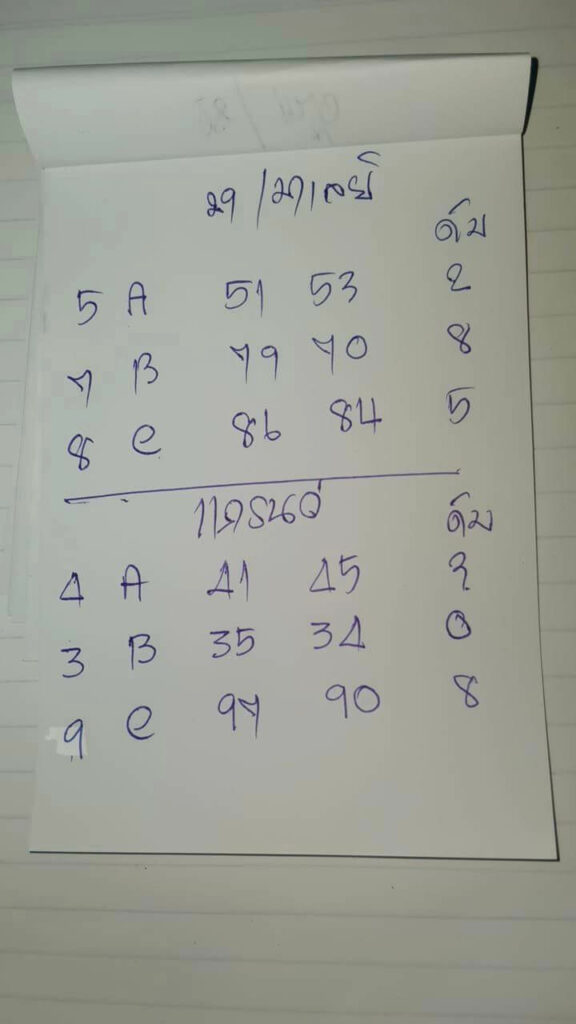 มาเลย์
ดับ
5 A 51 53 2
7 B 79 70 8
8 C 86 84 5
ดับ
4 A 41 45 2
3 B 35 34 0
9 C 97 90 8